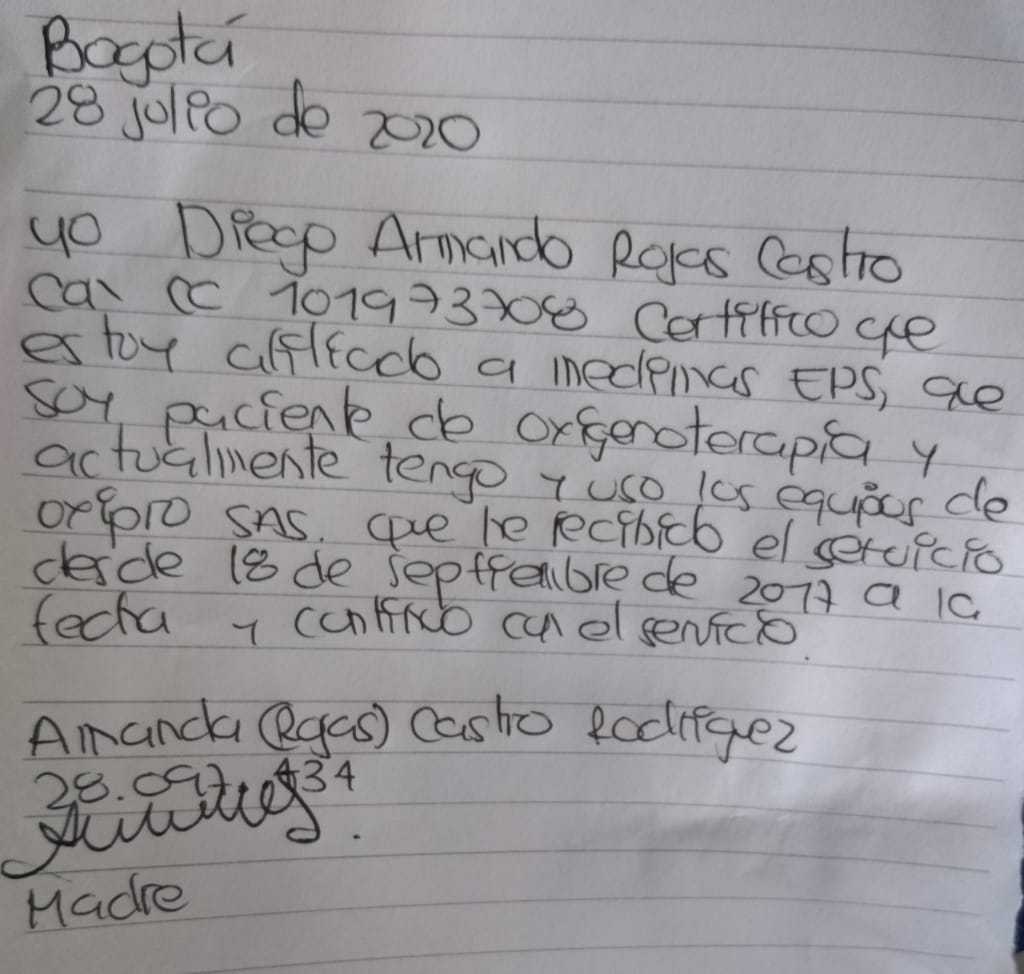 Bogotá
28 julio de 2020
yo Diego Armando Rojas Castro
con CC 101973708 Certifico que
estoy afiliado a medimas EPS, que
soy paciente de oxigenoterapia y
actualmente tengo y uso los equipos de
oxipro SAS. que he recibido el servicio
desde 18 de septiembre de 2017 a la
fecha y continuo con el servicio.
Amanda (Rojas) Castro Rodriguez
28.097
Madre